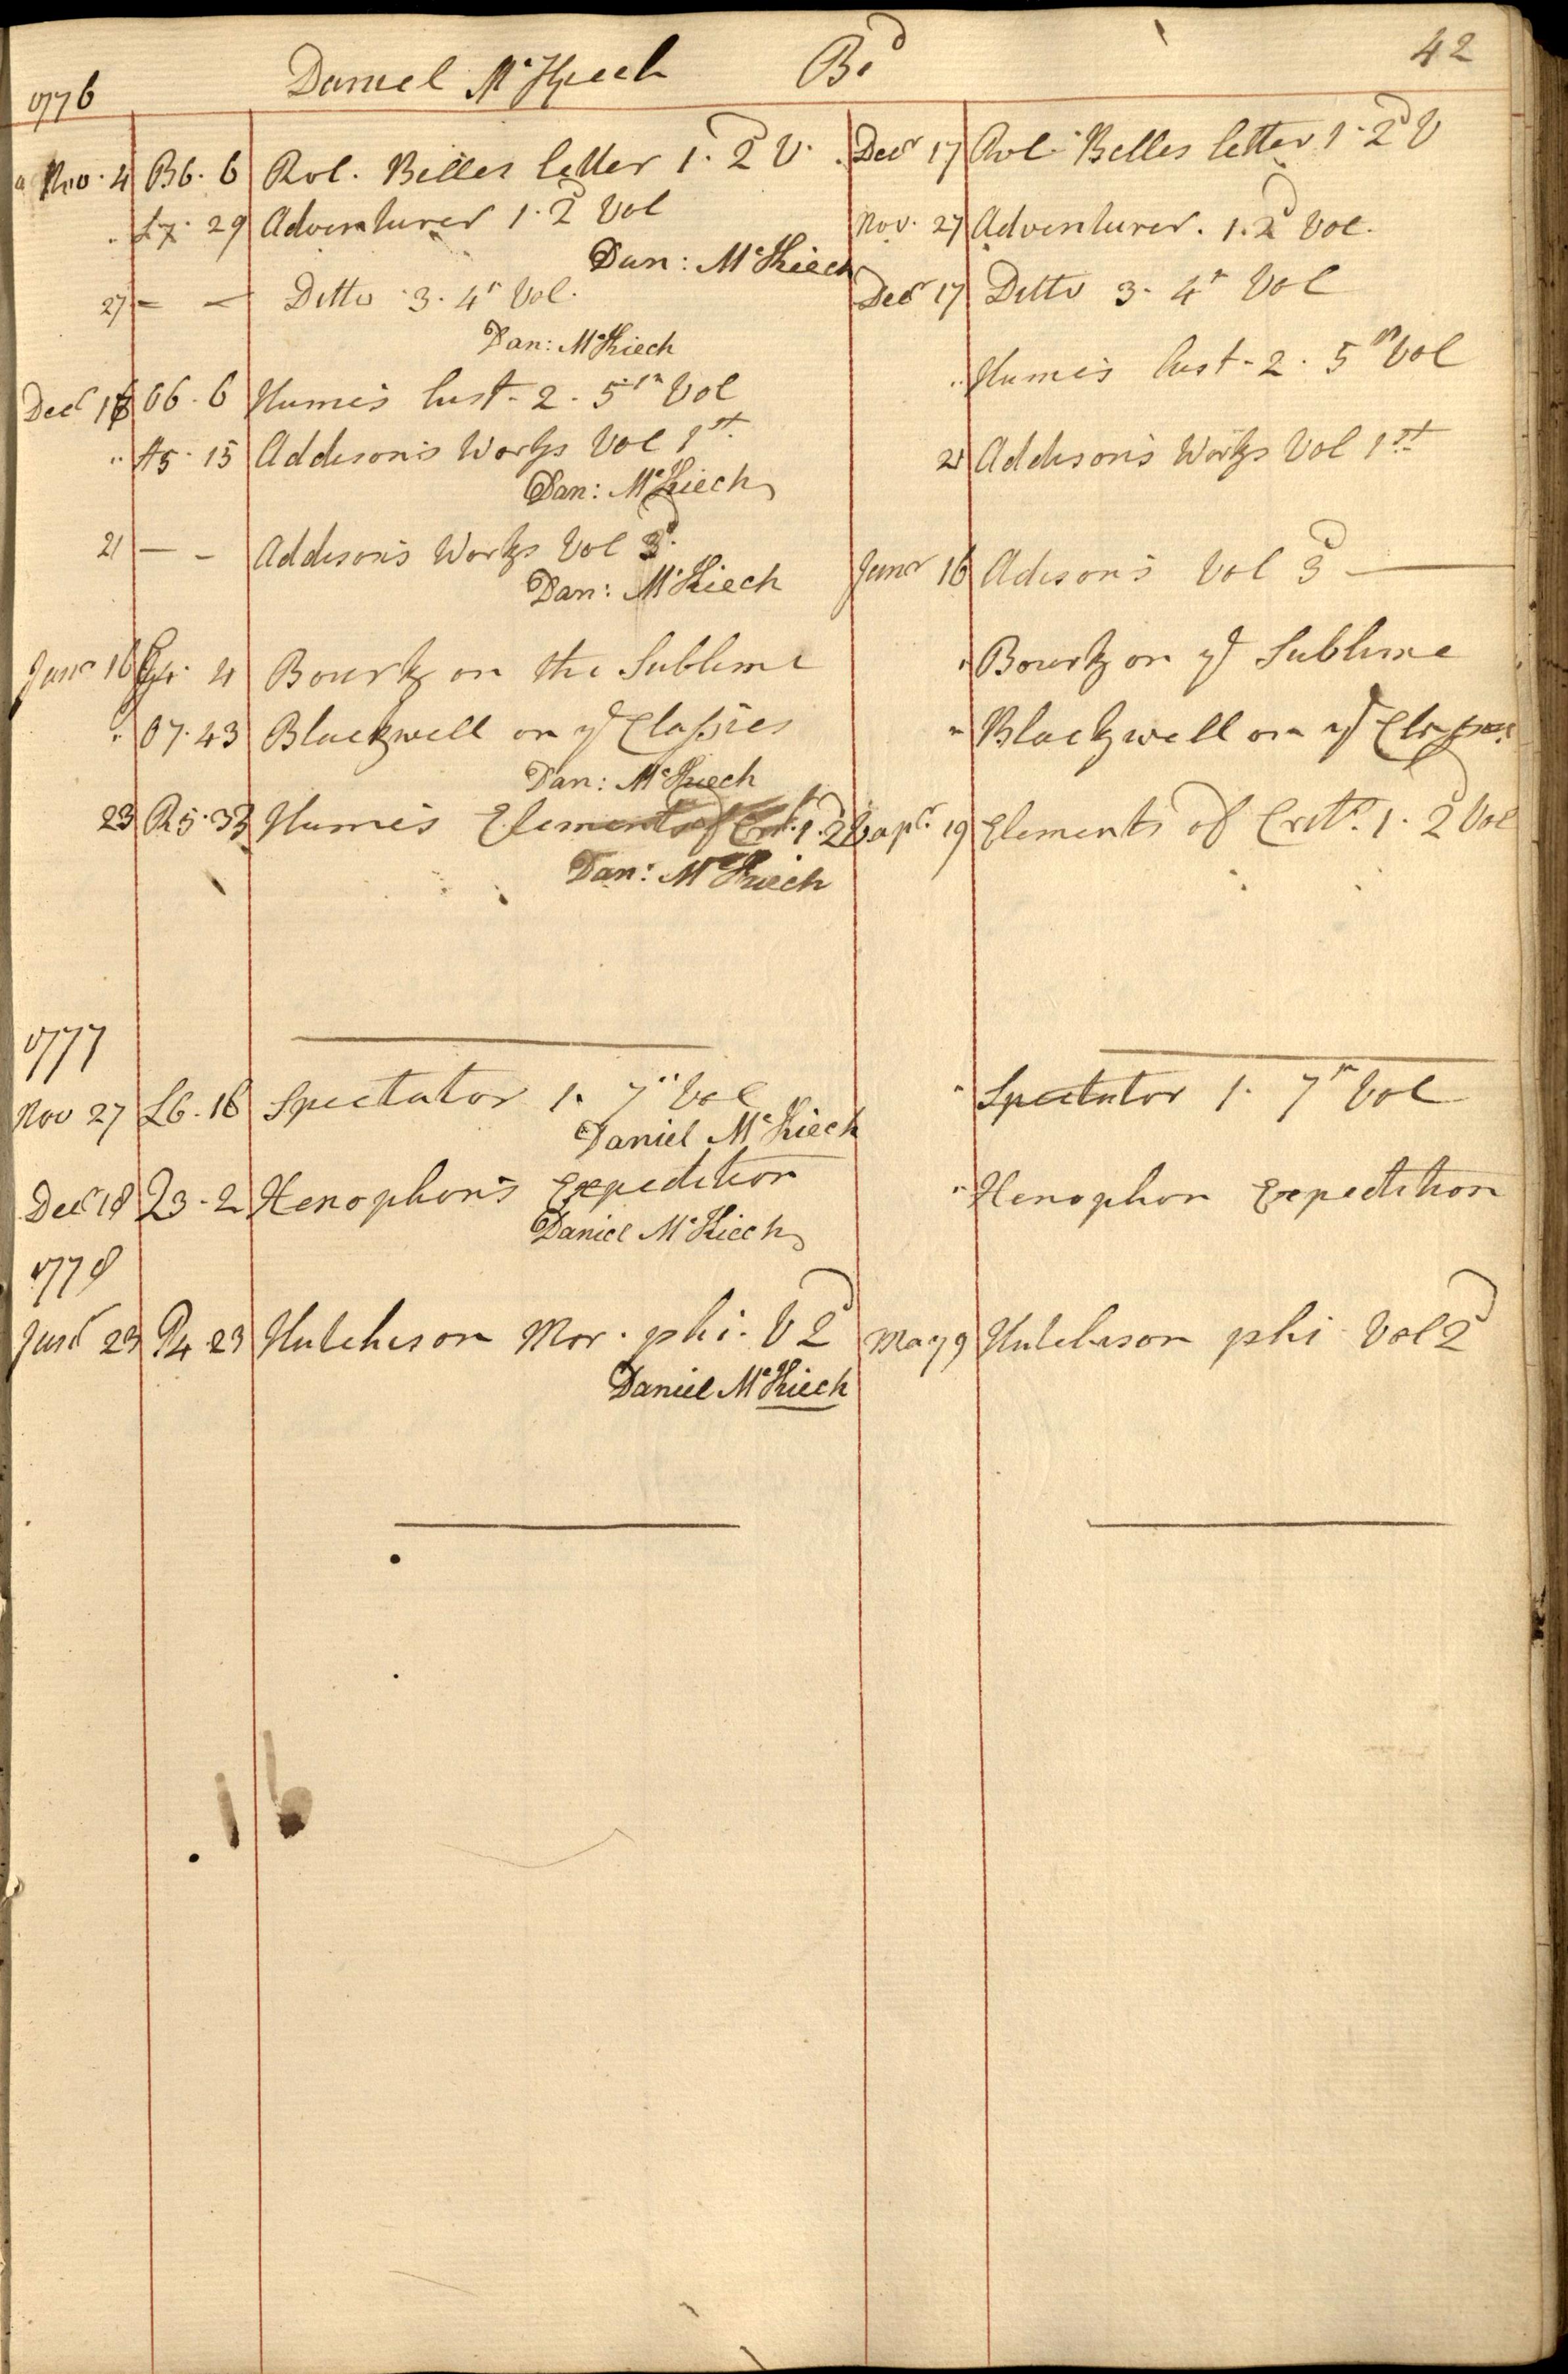 1776 Daniel McKiech Bd 42
Nov. 4 B6. 6 Rol. Belles letter 1. 2d V. Decr 17 Rol. Belles letter 1. 2d V
L7. 29 Adventurer 1. 2d Vol Nov. 27 Adventurer. 1. 2d Vol.
Dan: McKiech
27 — — Ditto 3. 4th Vol. Decr 17 Ditto 3. 4th Vol
Dan: McKiech
Decr 06. 6 Humes hist. 2. 5th Vol " Humes hist. 2. 5th Vol
" A5. 15 Addisons Works Vol 1st. 21 Addisons Works Vol 1st
Dan: McKiech
21 — - Addisons Works Vol 3d. Janr 16 Adisons Vol 3d —
Dan: McKiech
Janr 16 4 Bourk on the Sublime " Bourk on ye Sublime
" 07. 43 Blackwell on ye Classics " Blackwell on ye Classics
Dan: McKiech
23 R5. 33 Humes Elements of Crit. 1. 2d apr. 19 Elements of Crit. 1. 2d Vol
Dan: McKiech
1777
Nov 27 L6. 16 Spectator 1. 7th Vol " Spectator 1. 7th Vol
Daniel McKiech
Decr 18 Q3. 2 Xenophons Expedition " Xenophon Expedition
Daniel McKiech
1778
Janr 23 P4. 23 Hutcheson Mor. phi. V 2d May 9 Hutcheson phi Vol 2d
Daniel McKiech